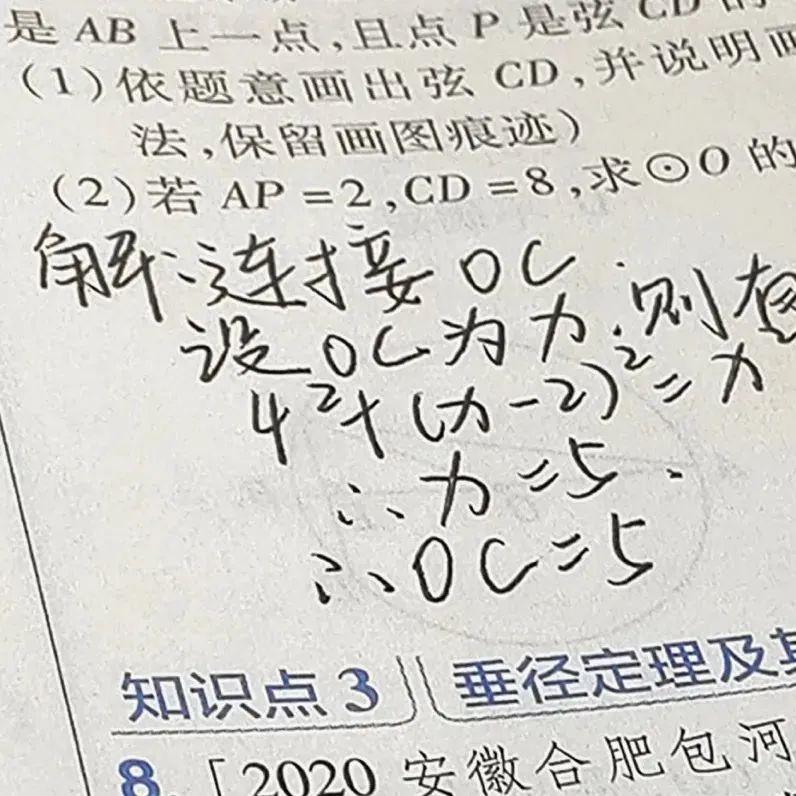 是 AB 上一点,且点 P 是弦 CD 的
(1)依题意画出弦 CD,并说明画
法,保留画图痕迹)
(2)若 AP=2,CD=8,求⊙O 的
解:连接 OC
设 OC 为 x.则有
4²+(x-2)²=x
∴x=5.
∴OC=5
知识点 3 垂径定理及其
8.「2020 安徽合肥包河